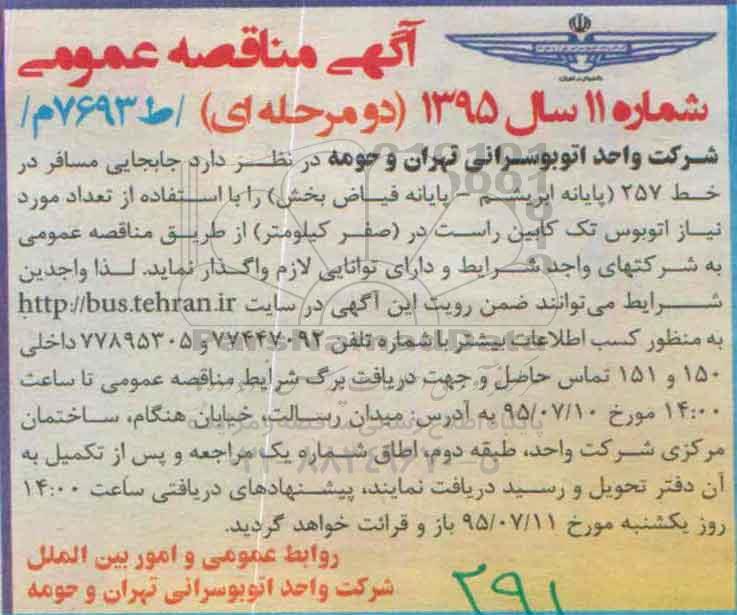 آگهی مناقصه عمومی
شماره ۱۱ سال ۱۳۹۵ (دو مرحله ای) /ط۷۶۹۳م/
شرکت واحد اتوبوسرانی تهران و حومه در نظر دارد جابجایی مسافر در
خط ۲۵۷ (پایانه ابریشم - پایانه فیاض بخش) را با استفاده از تعداد مورد
نیاز اتوبوس تک کابین راست در (صفر کیلومتر) از طریق مناقصه عمومی
به شرکتهای واجد شرایط و دارای توانایی لازم واگذار نماید. لذا واجدین
شرایط می‌توانند ضمن رویت این آگهی در سایت http://bus.tehran.ir
به منظور کسب اطلاعات بیشتر با شماره تلفن ۷۷۴۴۷۰۹۲ و ۷۷۸۹۵۳۰۵ داخلی
۱۵۰ و ۱۵۱ تماس حاصل و جهت دریافت برگ شرایط مناقصه عمومی تا ساعت
۱۴:۰۰ مورخ ۹۵/۰۷/۱۰ به آدرس: میدان رسالت، خیابان هنگام، ساختمان
مرکزی شرکت واحد، طبقه دوم، اطاق شماره یک مراجعه و پس از تکمیل به
آن دفتر تحویل و رسید دریافت نمایند، پیشنهادهای دریافتی ساعت ۱۴:۰۰
روز یکشنبه مورخ ۹۵/۰۷/۱۱ باز و قرائت خواهد گردید.
روابط عمومی و امور بین الملل
شرکت واحد اتوبوسرانی تهران و حومه
۲۹۱
ParsNamadData